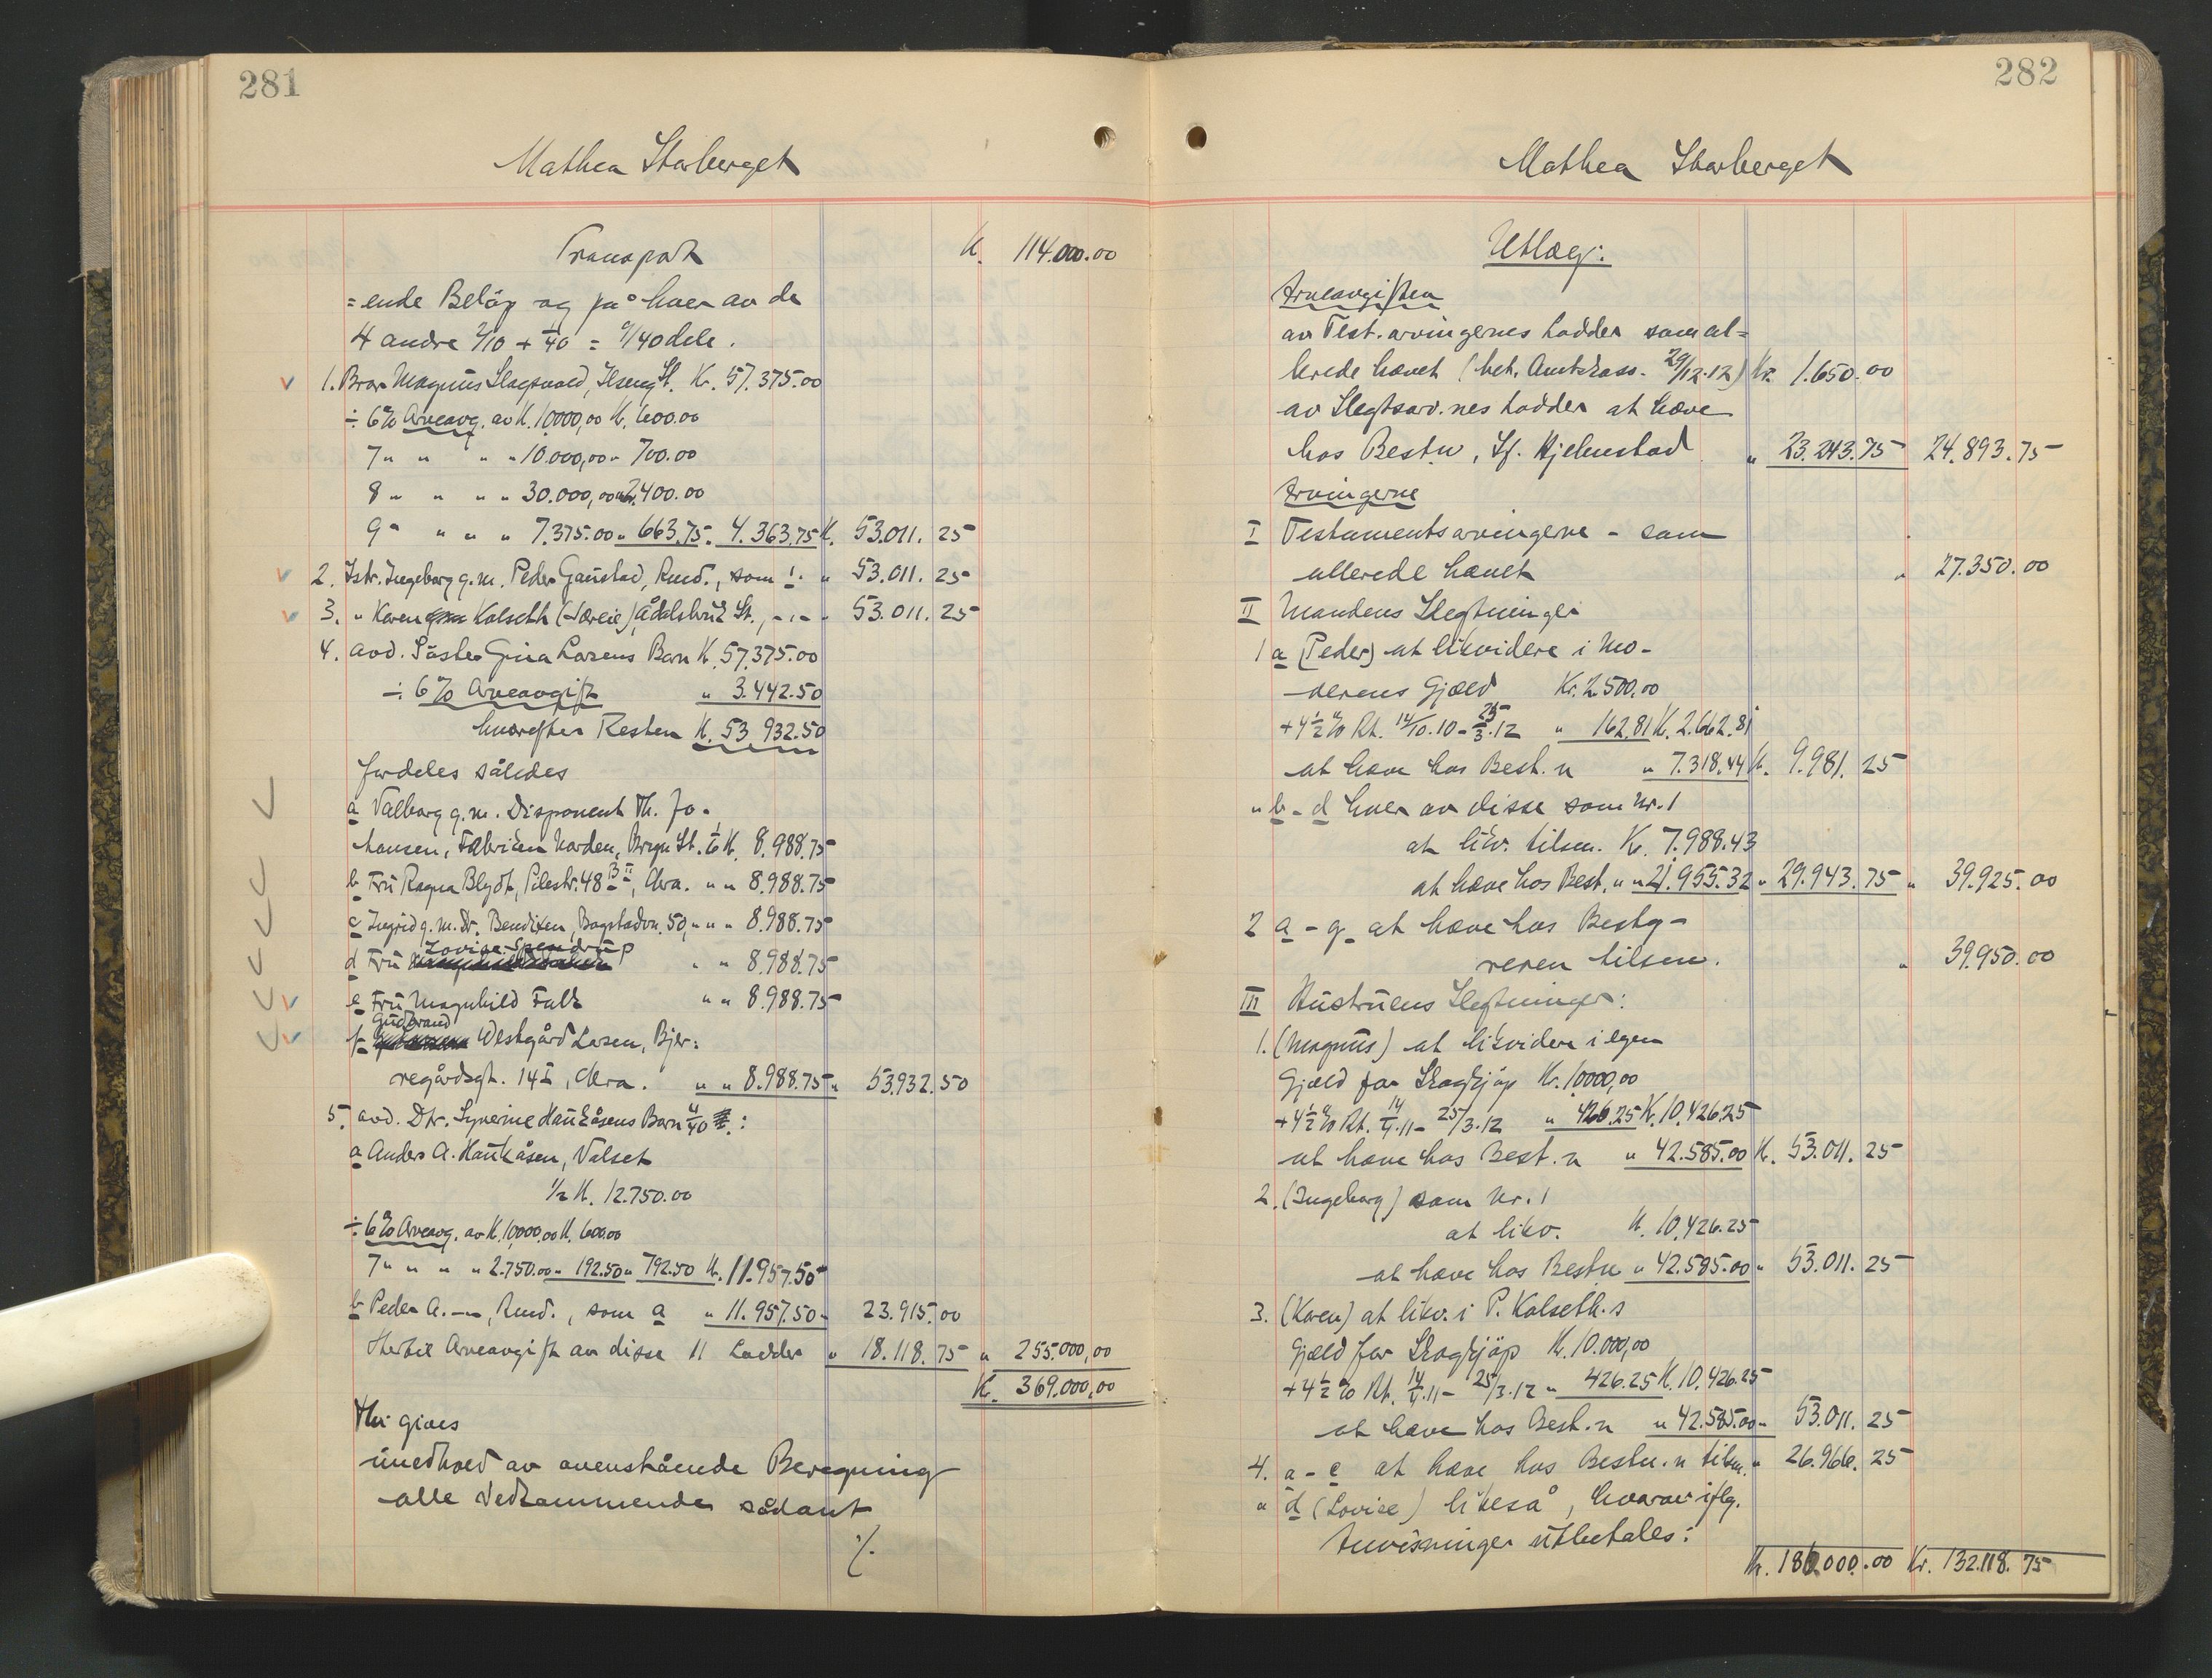 281
Mathea Storberget
Transport K. 114.000.00
=ende Beløp og på hver av de
4 andre 2/10 + 1/40 = 9/40 dele.
1. Bror Magnus Slagsvold, Ilseng St. Kr. 57.375.00
÷ 6% Arveavg. av K. 10000,00 K. 600.00
7 " " " " 10.000,00 " 700.00
8 " " " " 30.000,00 " 2.400.00
9 " " " " 7.375.00 " 663.75 " 4.363.75 K. 53.011.25
2. Sstr. Ingeborg g.m. Peder Gaustad, Rmd., som 1. " 53.011.25
3. " Karen Kolseth (Løreie), Ådalsbruk St., - " - " 53.011.25
4. avd. Søster Gina Larsens Barn K. 57.375.00
÷ 6% Arveavgift " 3.442.50
hvorefter Resten K. 53 932.50
fordeles således
a Valborg g.m. Disponent Th. Jo-
hansen, Fabriken Norden, Bryn St. 1/6 K. 8.988.75
b Fru Ragna Blydt, Pilestr. 48 B II, Kra. " " 8.988.75
c Ingrid g.m. Dr. Bendixen, Bogstadvn. 50, " " " 8.988.75
d Fru Lovise Spendrup " " 8.988.75
e Fru Magnhild Falk " " 8.988.75
Gudbrand
f Westgård Larsen, Bjer:
regårdsgt. 14 I, Kra. " " 8.988.75 " 53.932.50
5. avd. Dtr. Syverine Haukåsens Barn 4/40 :
a Anders A. Haukåsen, Valset
1/2 K. 12.750.00
÷ 6% Arveavg. av K. 10000.00 K. 600.00
7 " " " " 2.750.00 " 192.50 " 792.50 K. 11.957.50
b Peder A. - " -, Rmd., som a " 11.957.50 " 23.915.00
Hertil Arveavgift av disse 11 Lodder " 18.118.75 " 255.000,00
K. 369.000,00
Thi gives
i medhold av ovenstående Beregning
alle Vedkommende sådant
./.
282
Mathea Storberget
Utlæg:
Arveavgiften
av Test. arvingernes Lodder som al=
lerede hævet (bet. Amtskass. 29/12.12) Kr. 1.650.00
av Slegtsarv.nes Lodder at hæve
hos Bestn, Lf. Hjelmstad " 23.243.75 24.893.75
Arvingerne
I Testamentsarvingerne - som
allerede hævet " 27.350.00
II Mandens Slegtninge:
1 a (Peder) at likvidere i Mo-
derens Gjæld Kr. 2.500.00
+ 4 1/2 % Rt. 14/10.10 - 25/3.12 " 162.81 K. 2.662.81
at hæve hos Best.n " 7.318.44 K. 9.981.25
" b - d hver av disse som Nr. 1
at likv. tilsm. Kr. 7.988.43
at hæve hos Best. " " 21.955.32 " 29.943.75 " 39.925.00
2 a - g at hæve hos Besty-
reren tilsm. " 39.950.00
III Hustruens Slegtninger:
1. (Magnus) at likvidere i egen
Gjæld for Skogkjøp Kr. 10000,00
+ 4 1/2 % Rt. 14/4.11 - 25/3.12 " 426.25 K. 10.426.25
at hæve hos Best.n " 42.585.00 K. 53.011.25
2. (Ingeborg) som Nr. 1
at likv. K. 10.426.25
at hæve hos Bestn " 42.585.00 " 53.011.25
3. (Karen) at likv. i P. Kolseth.s
Gjæld for Skogkjøp K. 10.000,00
+ 4 1/2 % Rt. 14/4.11 - 25/3.12 " 426.25 K. 10.426.25
at hæve hos Best.n " 42.585.00 " 53.011.25
4. a - c at hæve hos Bestn.n tilsm. " 26.966.25
" d (Lovise) likeså, hvorav iflg.
Anvisninger utbetales:
K. 186.000.00 Kr. 132.118.75